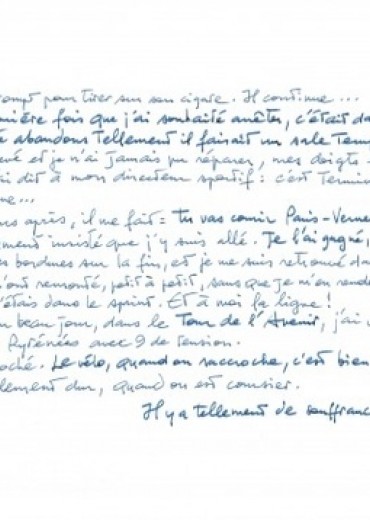 rompt pour tirer sur son cigare. Il continue ...
nière fois que j'ai souhaité arrêter, c'était da
é abandons tellement il faisait un sale tem
evé et je n'ai jamais pu réparer, mes doigts
ai dit à mon directeur sportif : c'est termin
me...
urs après, il me fait = tu vas courir Paris-Verne
ement insisté que j'y suis allé. Je l'ai gagné,
es bordures sur la fin, et je me suis retrouvé da
ont remonté, petit à petit, sans que je m'en rende
étais dans le sprint. Et à moi la ligne !
n beau jour, dans le Tour de l'Avenir, j'ai
Pyrénées avec 9 de tension.
oché. Le vélo, quand on raccroche, c'est bien
lement dur, quand on est coursier.
Il y a tellement de souffranc